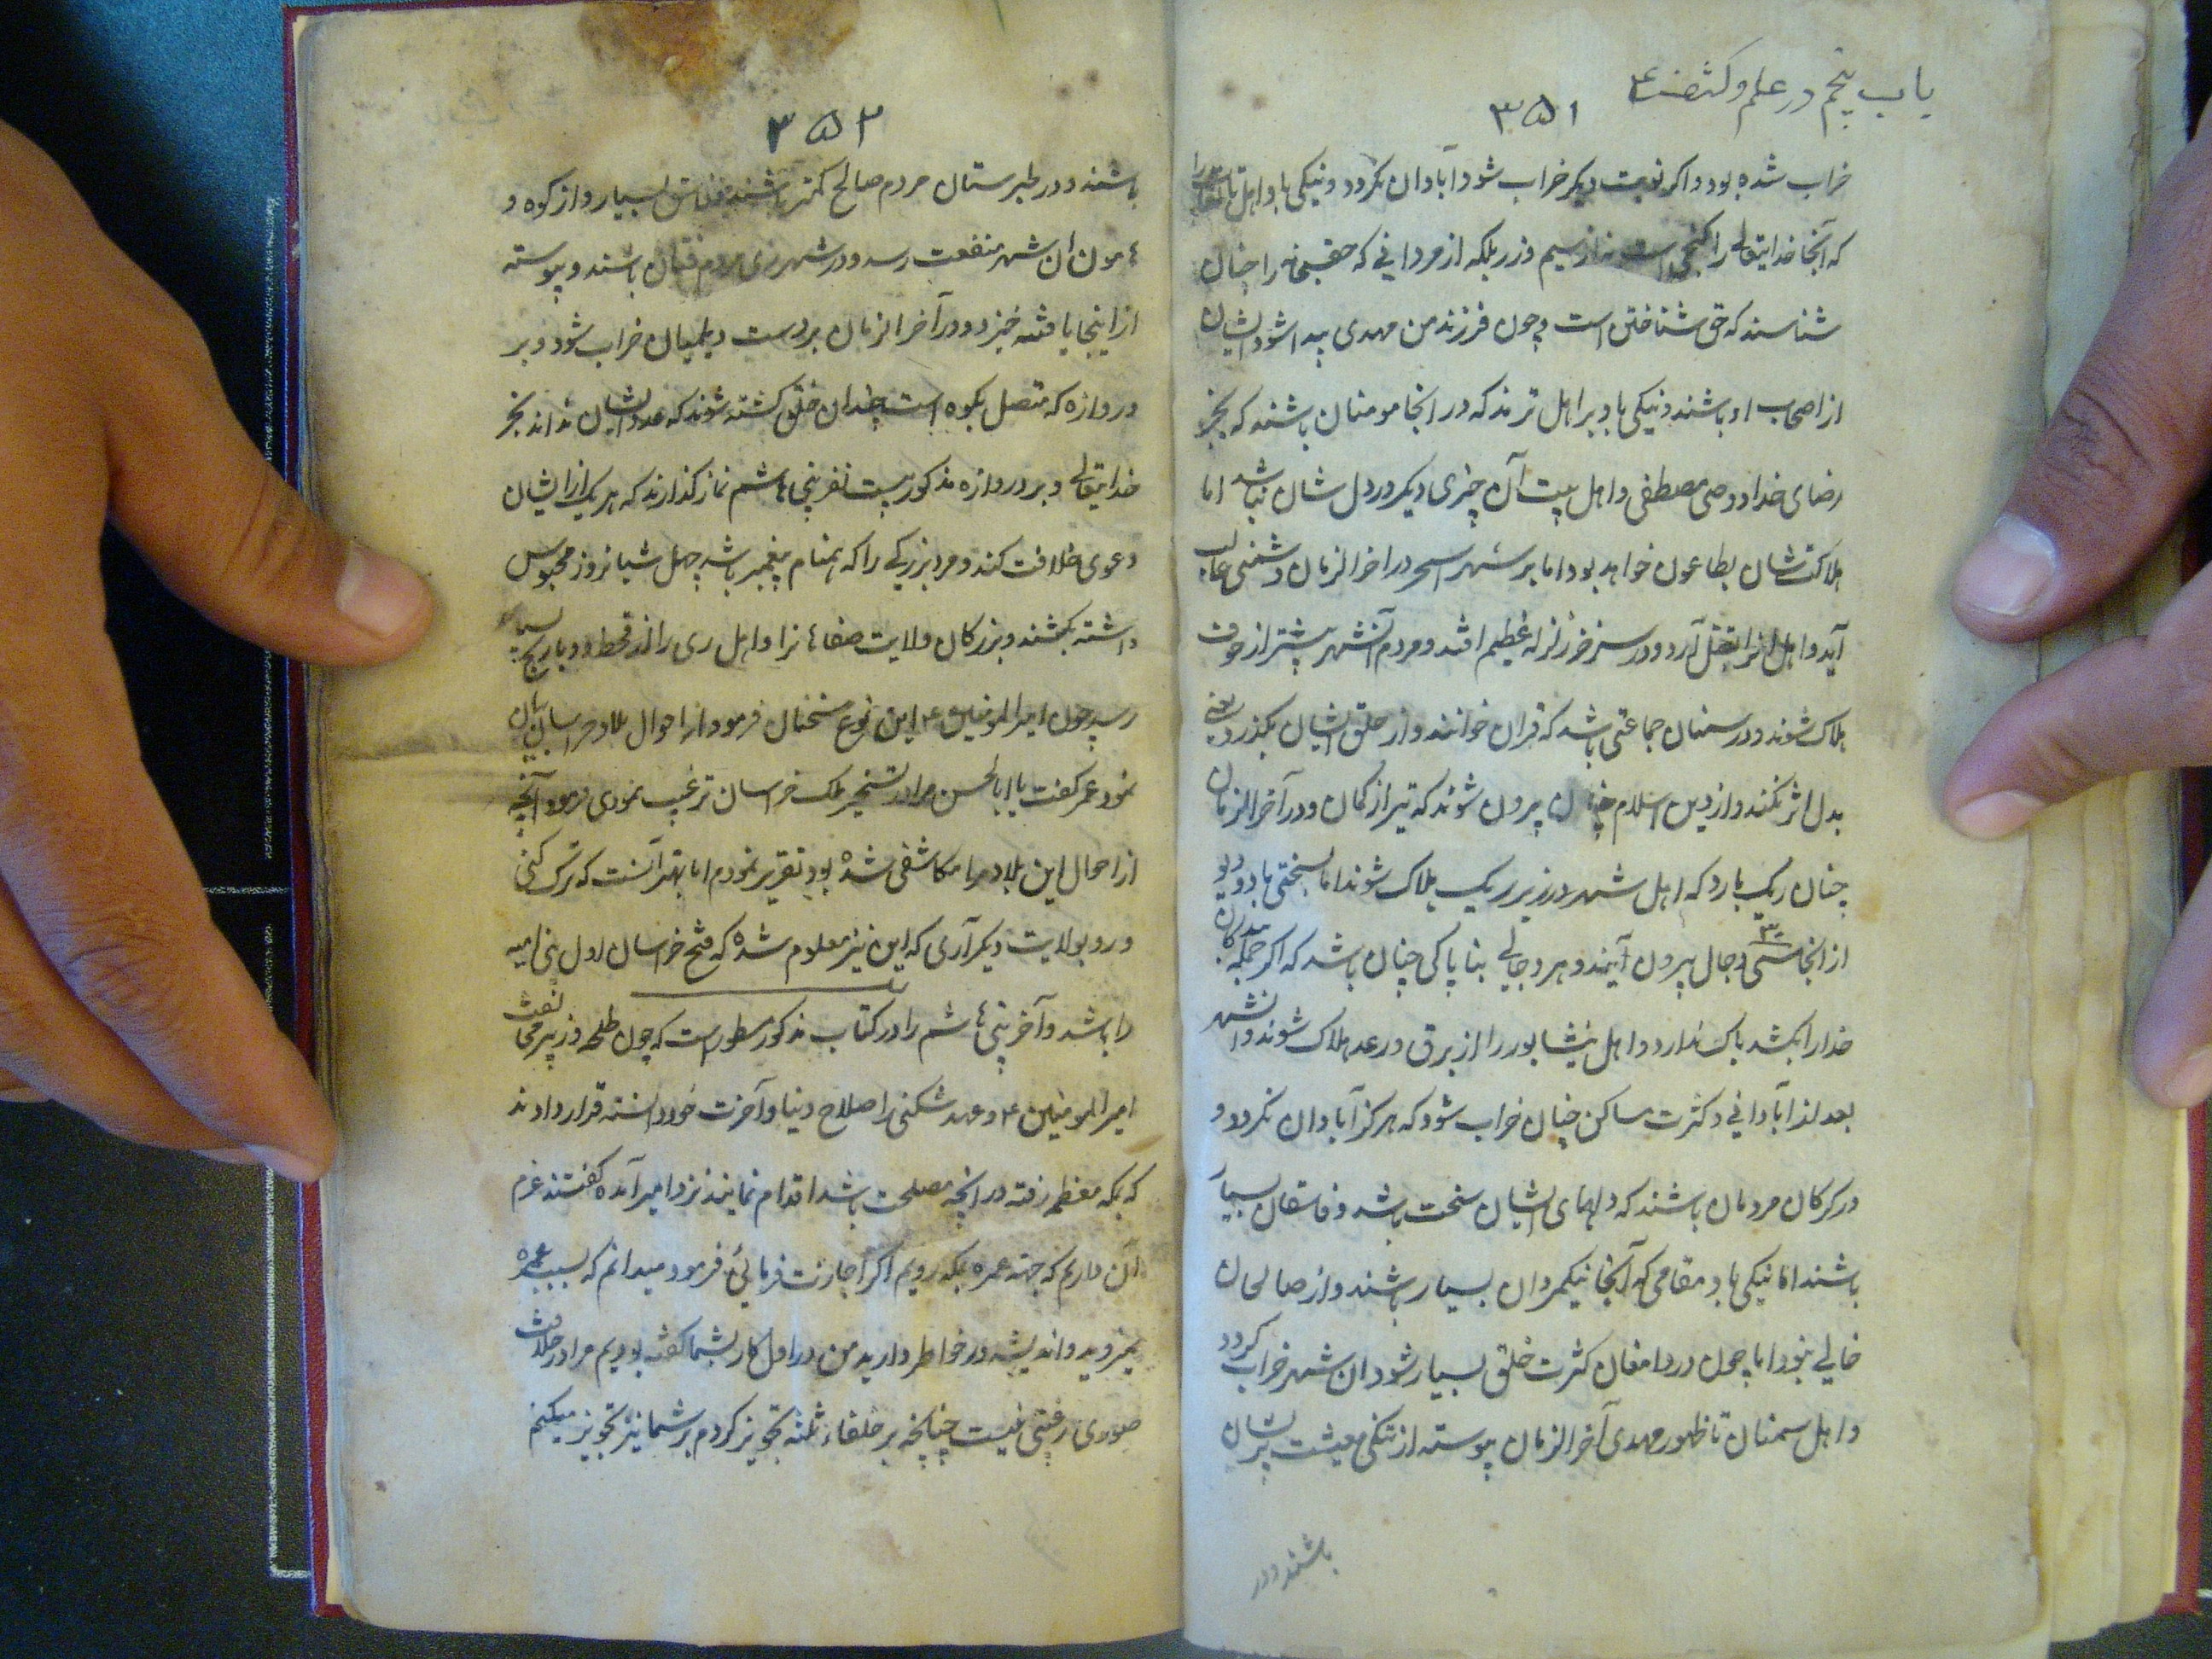 باب پنجم در علم و کشف
۳۵۱
خراب شده بود و اکر نوبت دیکر خراب شود آبادان نکردد و نیکی باد اهل تالقانرا
که آنجا خدایتعالی را کنجی است نه از سیم و زر بلکه از مردانی که حقتعالی را چنان
شناسند که حق شناختن است و چون فرزند من مهدی پیدا شود ایشان
از اصحاب او باشند و نیکی باد بر اهل ترمد که در انجا مومنان باشند که بجز
رضای خدا و وصی مصطفی و اهل بیت آن چیزی دیکر در دل شان نباشد اما
هلاکت شان بطاعون خواهد بود اما بر شهر در اخر الزمان دشمنی غالب
آید و اهل انرا بقتل آرد و در سرخس زلزله عظیم افتد و مردم آنشهر بیشتر از خوف
هلاک شوند و در سمنان جماعتی باشد که قران خوانند و از حلق ایشان بکذرد یعنی
بدل اثر نکند و از دین اسلام چنان بیرون شوند که تیر از کمان و در آخر الزمان
چنان ریک بارد که اهل شهر در زیر ریک هلاک شوند اما سختی باد
از انجا سی دجال بیرون آیند و هر دجالی بناپاکی چنان باشد که اکر جمله بندکان
۳۰
خدا را بکشد باک ندارد و اهل نیشابور را از برق و رعد هلاک شوند و آنشهر
بعد از آبادانی و کثرت ساکن چنان خراب شود که هرکز آبادان نکردد و
در کرکان مردمان باشند که دلهای ایشان سخت باشد و فاسقان بسیار
باشند اما نیکی باد مقامی که آنجا نیکمردان بسیار باشند و از صالحان
خالی نبود اما چون در دامغان کثرت خلق بسیار شود ان شهر خراب کردد
و اهل سمنان تا ظهور مهدی آخر الزمان پیوسته از تنکی معیشت پریشان
باشند و در
۳۵۲
باشند و در طبرستان مردم صالح کمتر باشند و فاسق بسیار و از کوه و
هامون ان شهر منفعت رسد و در شهر ری مردم فتان باشند و پیوسته
از اینجا یا فتنه خیزد و در آخر الزمان بردست دیلمیان خراب شود و بر
دروازه که متصل بکوه است چندان خلق کشته شوند که عدد ایشان نداند بجز
خدایتعالی و بر دروازه مذکور بیست نفر بنی هاشم نماز کذارند که هر یک از ایشان
دعوی خلافت کند و مرد بزرکی را که همنام پیغمبر باشد چهل شبانروز محبوس
داشته بکشند و بزرکان ولایت صفاهانرا و اهل ری را از قحط و وبا رنج بسیار
رسد چون امیر المومنین ع این نوع سخنان فرمود از احوال بلاد خراسان بیان
نمود عمر کفت یا ابا الحسن مرا در تسخیر ملک خراسان ترغیب نمودی فرمود آنچه
از احوال این بلاد مرا مکاشفی شده بود تقریر نمودم اما بهتر آنست که ترک کنی
و رو بولایت دیکر آری که این نیز معلوم شده که فتح خراسان اول بنی امیه
را باشد و آخر بنی هاشم را در کتاب مذکور مسطور است که چون طلحه و زبیر مخالفت
امیر المومنین ع و عهد شکنی را صلاح دنیا و آخرت خود دانسته قرار دادند
که بمکه معظمه رفته در آنچه مصلحت باشد اقدام نمایند نزد امیر آمده کفتند عزم
آن داریم که جهته عمره بمکه رویم اکر اجازت فرمائی فرمود میدانم که بسبب عمره
نمیروید و اندیشه در خواطر دارید من در اول کار بشما کفته بودیم مرا در خلافت
صوری رغبتی نیست چنانچه بر خلفاء ثلثه تجویز کردم بر شما نیز تجویز میکنم